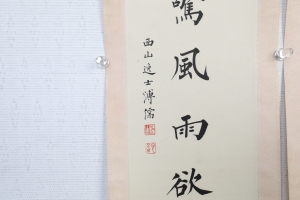 驚風雨欲
西山逸士溥儒